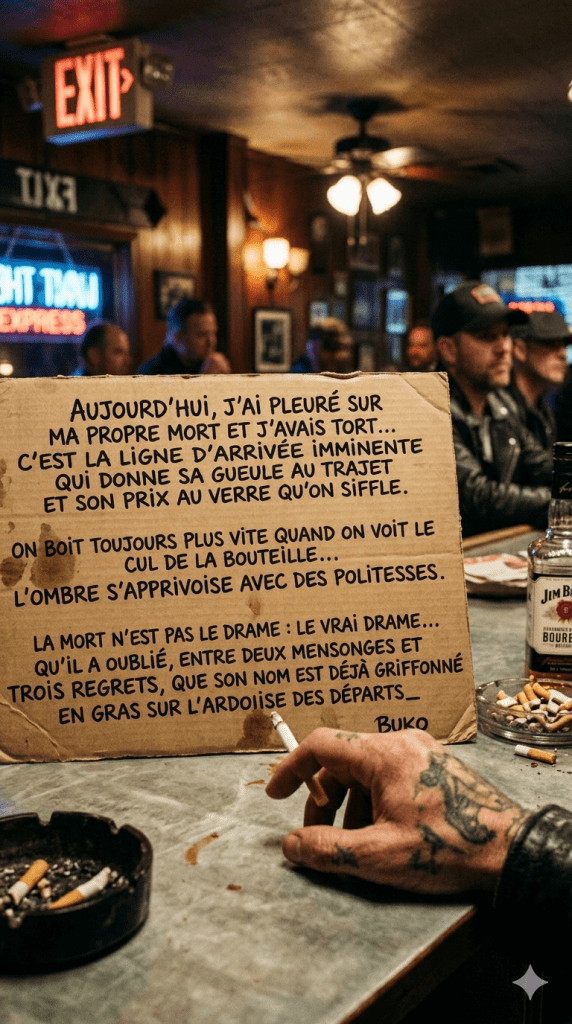 EXIT
EXIT
HT TH
EXPRESS
AUJOURD'HUI, J'AI PLEURÉ SUR
MA PROPRE MORT ET J'AVAIS TORT...
C'EST LA LIGNE D'ARRIVÉE IMMINENTE
QUI DONNE SA GUEULE AU TRAJET
ET SON PRIX AU VERRE QU'ON SIFFLE.
ON BOIT TOUJOURS PLUS VITE QUAND ON VOIT LE
CUL DE LA BOUTEILLE...
L'OMBRE S'APPRIVOISE AVEC DES POLITESSES.
LA MORT N'EST PAS LE DRAME : LE VRAI DRAME...
QU'IL A OUBLIÉ, ENTRE DEUX MENSONGES ET
TROIS REGRETS, QUE SON NOM EST DÉJÀ GRIFFONNÉ
EN GRAS SUR L'ARDOIISE DES DÉPARTS_
BUKO
JIM B
BOUR